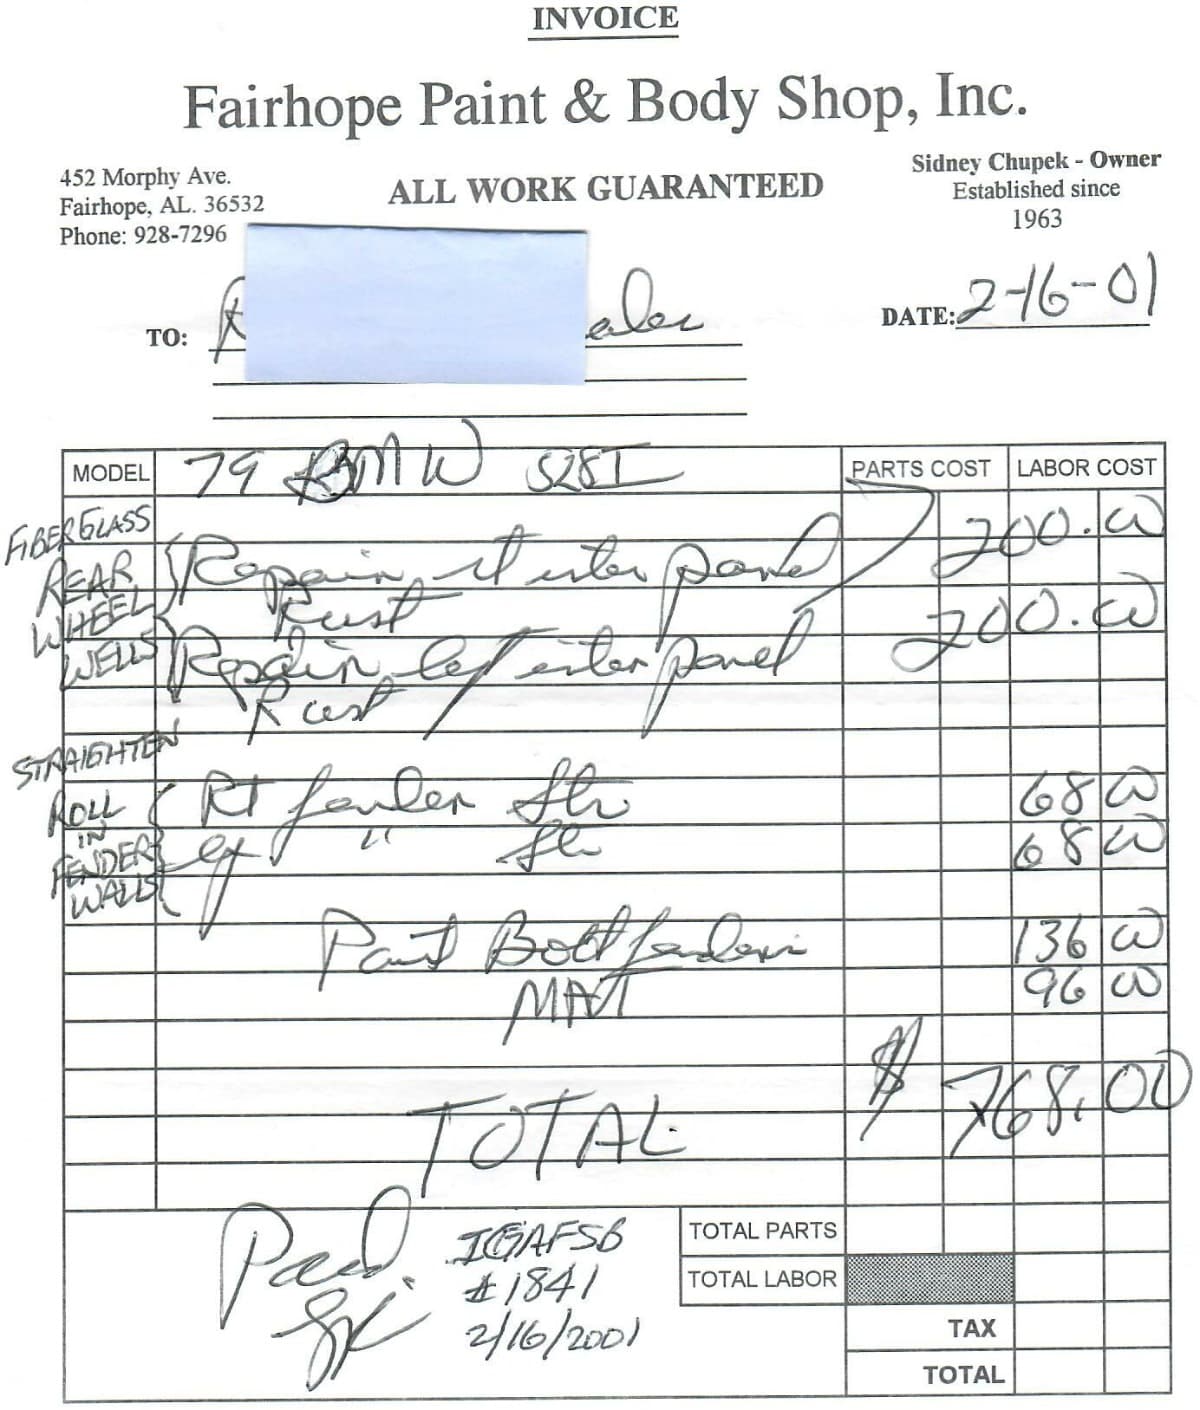 INVOICE
Fairhope Paint & Body Shop, Inc.
452 Morphy Ave.
Fairhope, AL. 36532
Phone: 928-7296
ALL WORK GUARANTEED
Sidney Chupek - Owner
Established since
1963
TO:
DATE: 2-16-01
MODEL 79 BMW 528I PARTS COST LABOR COST
FIBERGLASS
REAR
WHEEL
WELLS
Repair rt outer panel 200.00
Rust
Repair left outer panel 200.00
Rust
STRAIGHTEN
ROLL
IN
FENDER
WALLS
Rt fender Str 68 00
Lf " Str 68 00
Paint Both fenders 136 00
MAT 96 00
TOTAL $ 768.00
Paid.
IGAFSB
#1841
2/16/2001
TOTAL PARTS
TOTAL LABOR
TAX
TOTAL